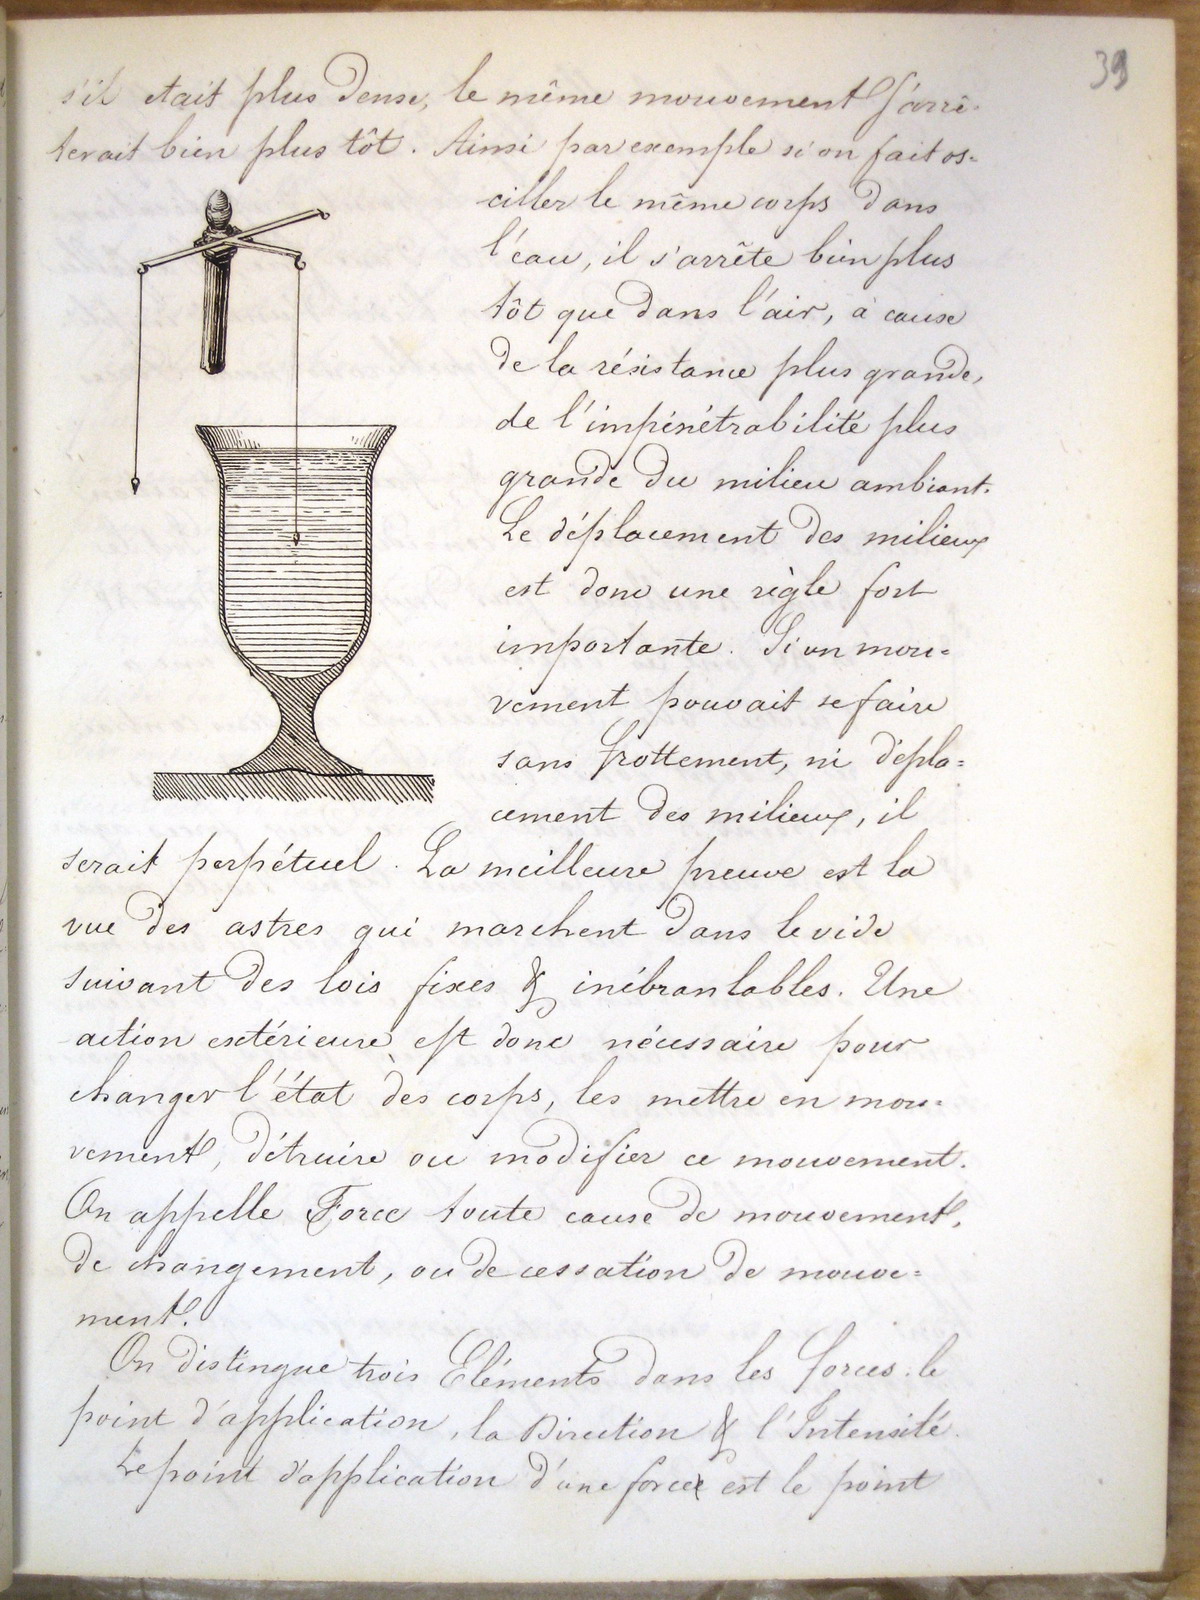 39
s'il etait plus dense, le même mouvement s'arrê-
terait bien plus tôt. Ainsi par exemple si on fait os=
ciller le même corps dans
l'eau, il s'arrête bien plus
tôt que dans l'air, à cause
de la résistance plus grande,
de l'impénétrabilité plus
grande du milieu ambiant.
Le déplacement des milieux
est donc une règle fort
importante. Si un mou=
vement pouvait se faire
sans frottement, ni dépla=
cement des milieux, il
serait perpétuel. La meilleure preuve est la
vue des astres qui marchent dans le vide
suivant des lois fixes & inébranlables. Une
action extérieure est donc nécessaire pour
changer l'état des corps, les mettre en mou=
vement, détruire ou modifier ce mouvement.
On appelle Force toute cause de mouvement,
de changement, ou de cessation de mouve=
ment.
On distingue trois Eléments dans les forces: le
point d'application, la Direction & l'Intensité.
Le point d'application d'une force est le point